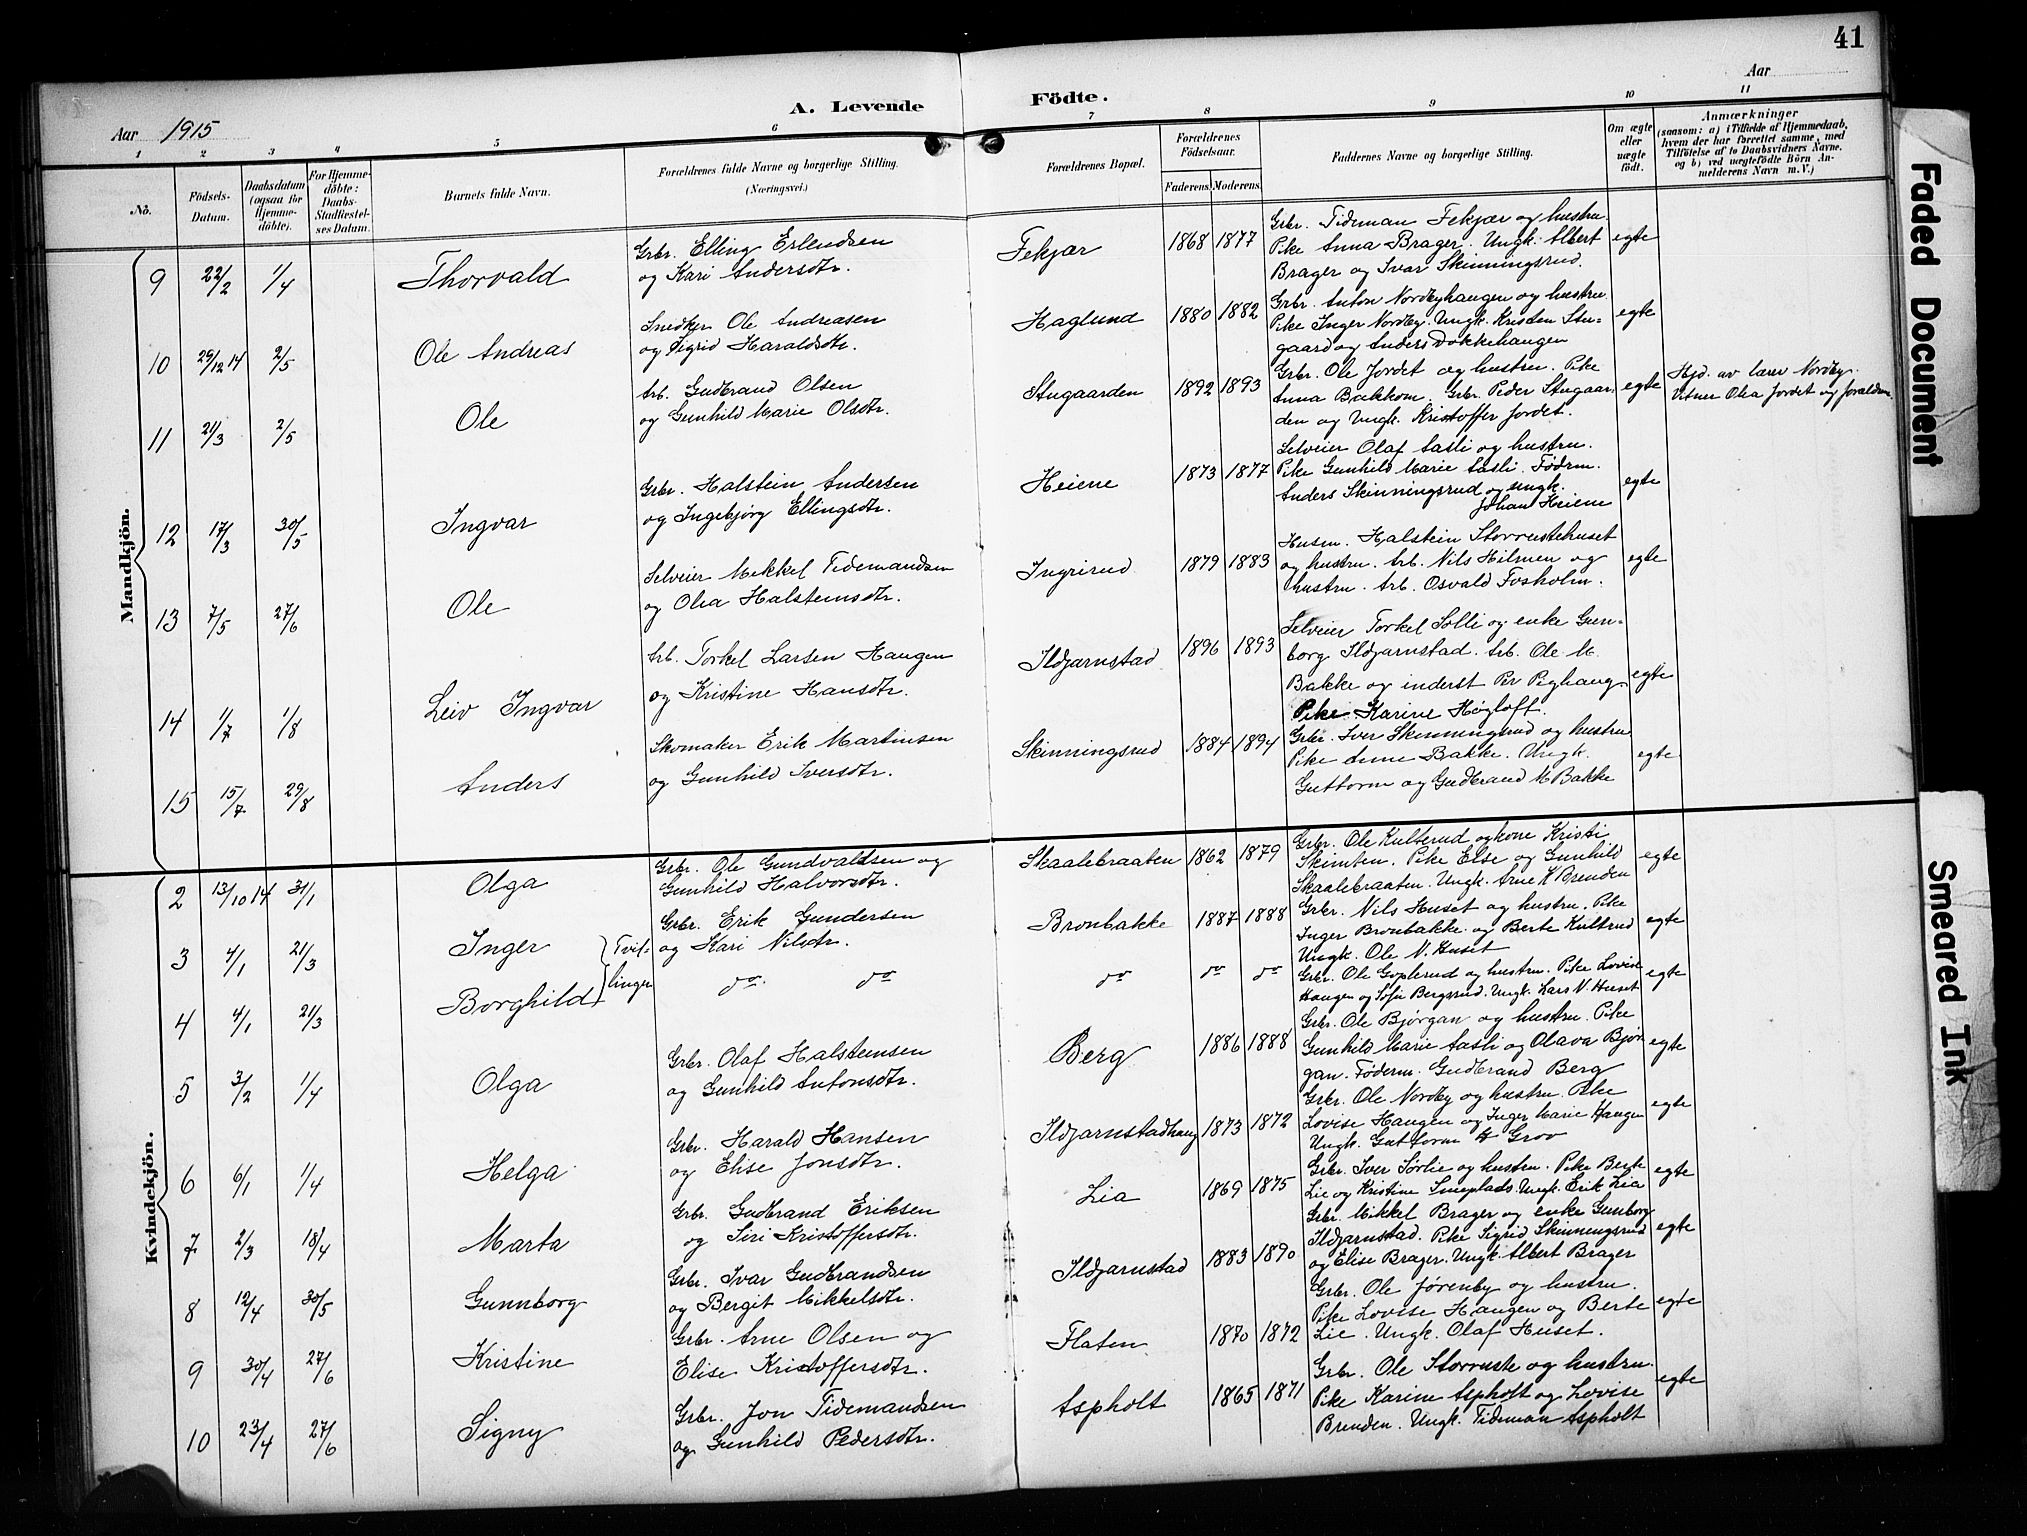 41
Aar 1915
A. Levende Födte.
Aar
1 2 3 4 5 6 7 8 9 10 11
No.
Födsels-Datum.
Daabsdatum (ogsaa for Hjemme-döbte).
For Hjemme-döbte: Daabs-Stadfestel-ses Datum.
Barnets fulde Navn.
Forældrenes fulde Navne og borgerlige Stilling.
(Næringsvei.)
Forældrenes Bopæl.
Forældrenes Födselsaar.
Faderens. Moderens.
Faddernes Navne og borgerlige Stilling.
Om ægte eller uægte födt.
Anmærkninger
(saasom: a) i Tilfælde af Hjemmedaab, hvem der har forrettet samme, med Tilföielse af to Daabsvidners Navne, og b) ved uægtefödte Börn An-melderens Navn m. V.)
Mandkjön.
9 22/2 1/4 Thorvald
Grbr. Elling Erlendsen
og Kari Andersdtr.
Fekjær 1868 1877
Grbr. Tideman Fekjær og hustru.
Pike Anna Brager. Ungk. Albert
Brager og Ivar Skinningsrud.
egte
10 29/12 14 2/5 Ole Andreas
Snedker Ole Andreasen
og Sigrid Haraldsdtr.
Haglund 1880 1882
Grbr. Anton Nordbyhaugen og hustru.
Pike Inger Nordby. Ungk. Kristen Stu-
gaard og Anders Dokkehaugen
egte
11 21/3 2/5 Ole
Arb. Gudbrand Olsen
og Gunhild Marie Olsdtr.
Stugaarden 1892 1893
Grbr. Ole Jordet og hustru. Pike
Anna Bakkom. Grbr. Peder Stugaar-
den og Ungk. Kristoffer Jordet.
egte
Hjd. av lærer Nordby.
Vitner Olea Jordet og
12 17/3 30/5 Ingvar
Grbr. Halstein Andersen
og Ingebjørg Ellingsdtr.
Heiene 1873 1877
Selveier Olaf Aasli og hustru.
Pike Gunhild Marie Aasli. Födrm.
Anders Skinningsrud og ungk.
Johan Heiene
egte
13 7/5 27/6 Ole
Selveier Mikkel Tidemandsen
og Olea Halsteinsdtr.
Ingrirud 1879 1883
Husm. Halstein Storrustehuset
og hustru. Arb. Nils Hilmen og
hustru. Arb. Osvald Fosholm.
egte
14 1/7 1/8 Leiv Ingvar
Arb. Torkel Larsen Haugen
og Kristine Hansdtr.
Ildjarnstad 1896 1893
Selveier Torkel Solli og enke Gun-
borg Ildjarnstad. Arb. Ole M.
Bakke og inderst Per Pighaug.
Pike Karine Høgloft.
egte
15 15/7 29/8 Anders
Skomaker Erik Martinsen
og Gunhild Iversdtr.
Skinningsrud 1884 1894
Grbr. Iver Skinningsrud og hustru
Pike Anne Bakke. Ungk.
Guttorm og Gudbrand M Bakke
egte
Kvindekjön.
2 13/10 14 31/1 Olga
Grbr. Ole Gundvaldsen og
Gunhild Halvorsdtr.
Skaalebraaten 1862 1879
Grbr. Ole Kulterud og kone Kristi
Skimten. Pike Else og Gunhild
Skaalebraaten. Ungk. Arne K Brenden
egte
3 4/1 21/3 Inger
Tvil-
linger
Grbr. Erik Gundersen
og Kari Nilsdtr.
Bronbakke 1887 1888
Grbr. Nils Huset og hustru. Pike
Inger Bronbakke og Berte Kultrud
Ungk. Ole N. Huset
egte
4 4/1 21/3 Borghild
do do
do do do
Grbr. Ole Goplerud og hustru. Pike Lovise
Haugen og Sofie Bergsrud. Ungk. Lars N. Huset
egte
5 3/2 1/4 Olga
Grbr. Olaf Halsteinsen
og Gunhild Antonsdtr.
Berg 1886 1888
Grbr. Ole Bjørgan og hustru. Pike
Gunhild Marie Aasli og Olava Bjør
gan. Föderm. Gudbrand Berg
egte
6 6/1 1/4 Helga
Grbr. Harald Hansen
og Elise Jonsdtr.
Ildjarnstadhaug 1873 1872
Grbr. Ole Nordby og hustru. Pike
Lovise Haugen og Inger Marie Haugen
Ungk. Guttorm H Grov
egte
7 2/3 18/4 Marta
Grbr. Gudbrand Eriksen
og Siri Kristoffersdtr.
Lia 1869 1875
Grbr. Iver Sørlie og hustru. Pike Berte
Lie og Kristine Smeplads. Ungk. Erik Lia
egte
8 12/4 30/5 Gunnborg
Grbr. Ivar Gudbrandsen
og Bergit Mikkelsdtr.
Ildjarnstad 1883 1890
Grbr. Mikkel Brager og enke Gunborg
Ildjarnstad. Pike Sigrid Skinningsrud
og Elise Brager. Ungk. Albert Brager
egte
9 30/4 27/6 Kristine
Grbr. Arne Olsen og
Elise Kristoffersdtr.
Flaten 1870 1872
Grbr. Ole Jørenby og hustru.
Pike Lovise Haugen og Berte
Lie. Ungk. Olaf Huset.
egte
10 23/4 27/6 Signy
Grbr. Jon Tidemandsen
og Gunhild Pedersdtr.
Aspholt 1865 1871
Grbr. Ole Storruste og hustru.
Pike Karine Aspholt og Lovise
Brenden. Ungk. Tideman Aspholt
egte
Faded Document
Smeared Ink